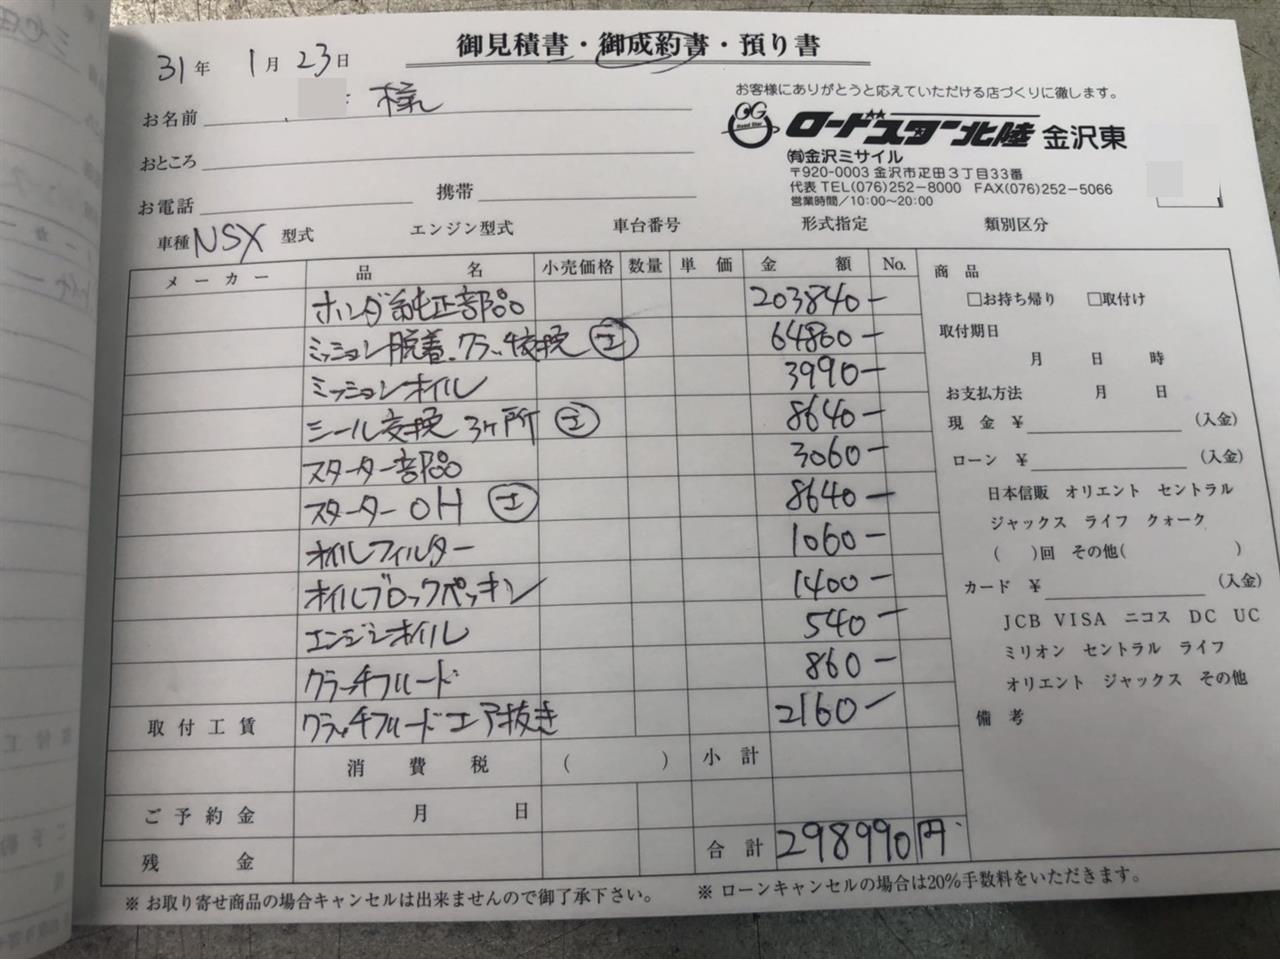 御見積書・御成約書・預り書
31年 1月23日
お名前 様
おところ
お電話 携帯
お客様にありがとうと応えていただける店づくりに徹します。
OG
Road Star
ロードスター北陸 金沢東
㈲金沢ミサイル
〒920-0003 金沢市疋田3丁目33番
代表 TEL(076)252-8000 FAX(076)252-5066
営業時間/10:00~20:00
車種 NSX 型式 エンジン型式 車台番号 形式指定 類別区分
メーカー 品名 小売価格 数量 単価 金額 No.
ホンダ純正部品 203840-
ミッション脱着、クラッチ交換 工 64800-
ミッションオイル 3990-
シール交換 3ヶ所 工 8640-
スターター部品 3060-
スターターOH 工 8640-
オイルフィルター 1060-
オイルブロックパッキン 1400-
エンジンオイル 540-
クラッチフルード 860-
取付工賃 クラッチフルードエア抜き 2160-
消費税 ( ) 小計
ご予約金 月 日
残金 合計 298990円
商品
□お持ち帰り □取付け
取付期日
月 日 時
お支払方法 月 日
現金 ¥ (入金)
ローン ¥ (入金)
日本信販 オリエント セントラル
ジャックス ライフ クォーク
( )回 その他( )
カード ¥ (入金)
JCB VISA ニコス DC UC
ミリオン セントラル ライフ
オリエント ジャックス その他
備考
※ お取り寄せ商品の場合キャンセルは出来ませんので御了承下さい。 ※ ローンキャンセルの場合は20%手数料をいただきます。